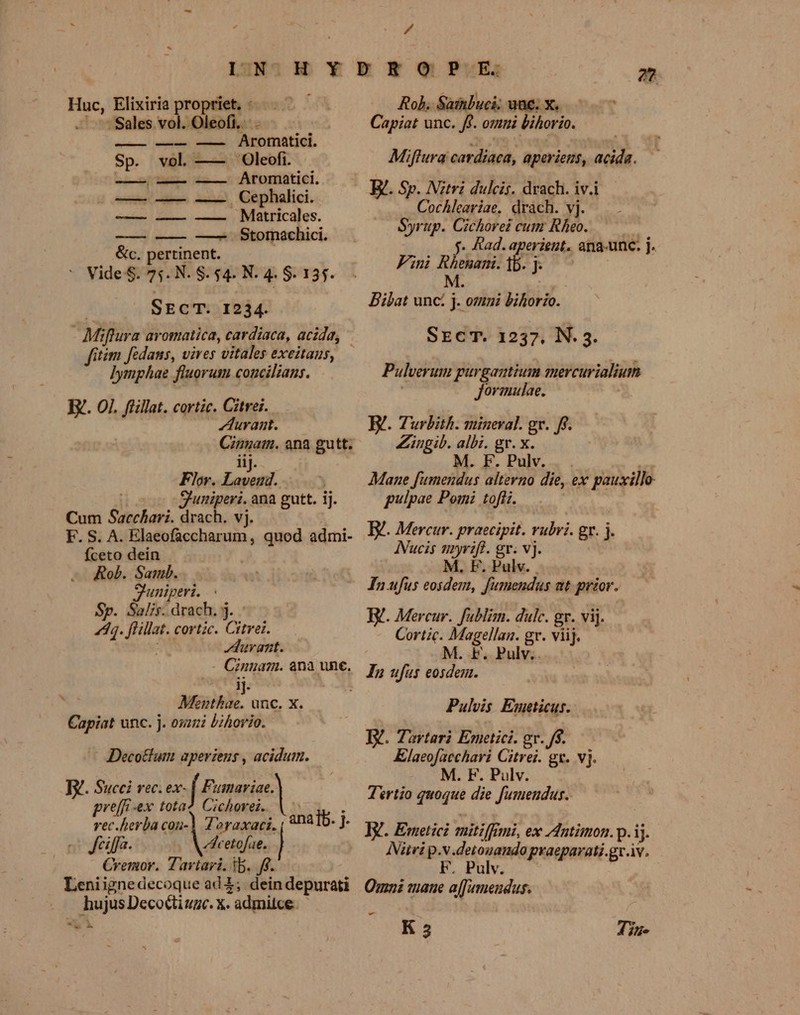 IN HYDROPE. 77
Huc, Elixiria propriet.
Sales vol. Oleoſi.
—— —— —— Aromatici.
Sp. vol. —— Oleoſi.
—— —— —— Aromatici.
—— —— —— Cephalici.
—— —— —— Matricales.
—— —— —— Stomachici.
&c. pertinent.
Vide §. 75. N. §. 54. N. 4. §. 135.
SECT. 1234.
Miſtura aromatica, cardiaca, acida,
ſitim ſedans, vires vitales excitans,
lymphae fluorum concilians.
℞. Ol. ſtillat. cortic. Citrei.
Aurant.
Cinnam. ana gutt.
iij.
Flor. Lavend.
Juniperi. ana gutt. ij.
Cum Sacchari. drach. vj.
F. S. A. Elaeoſaccharum, quod admi-
ſceto dein
Rob. Samb.
Juniperi.
Sp. Salis. drach. j.
Aq. ſtillat. cortic. Citrei.
Aurant.
Cinnam. ana unc.
ij.
Menthae. unc. x.
Capiat unc. j. omni bihorio.
Decoctum aperiens, acidum.
℞. Succi rec. ex- { Fumariae.
preſſi ex tota { Cichorei.
rec. herba con- { Taraxaci. } ana ℔. j.
ſciſſa. { Acetoſae.
Cremor. Tartari. ℔. ſſ.
Leni igne decoque ad ¾; dein depurati
hujus Decocti unc. x. admisce
Rob. Sambuci. unc. x.
Capiat unc. ſſ. omni bihorio.
Miſtura cardiaca, aperiens, acida.
℞. Sp. Nitri dulcis. drach. iv.
Cochleariae. drach. vj.
Syrup. Cichorei cum Rheo.
5. Rad. aperient. ana unc. j.
Vini Rhenani. ℔. j.
M.
Bibat unc. j. omni bihorio.
SECT. 1237. N. 3.
Pulverum purgantium mercurialium
formulae.
℞. Turbith. mineral. gr. ſſ.
Zingib. albi. gr. x.
M. F. Pulv.
Mane ſumendus alterno die, ex pauxillo
pulpae Pomi toſti.
℞. Mercur. praecipit. rubri. gr. j.
Nucis myriſt. gr. vj.
M. F. Pulv.
In uſus eosdem, ſumendus ut prior.
℞. Mercur. ſublim. dulc. gr. vij.
Cortic. Magellan. gr. viij.
M. F. Pulv.
In uſus eosdem.
Pulvis Emeticus.
℞. Tartari Emetici. gr. ſſ.
Elaeoſacchari Citrei. gr. vj.
M. F. Pulv.
Tertio quoque die ſumendus.
℞. Emetici mitiſſimi, ex Antimon. p. ij.
Nitri p. v. detonando praeparati. gr. iv.
F. Pulv.
Omni mane aſſumendus.
K 3 Tin-